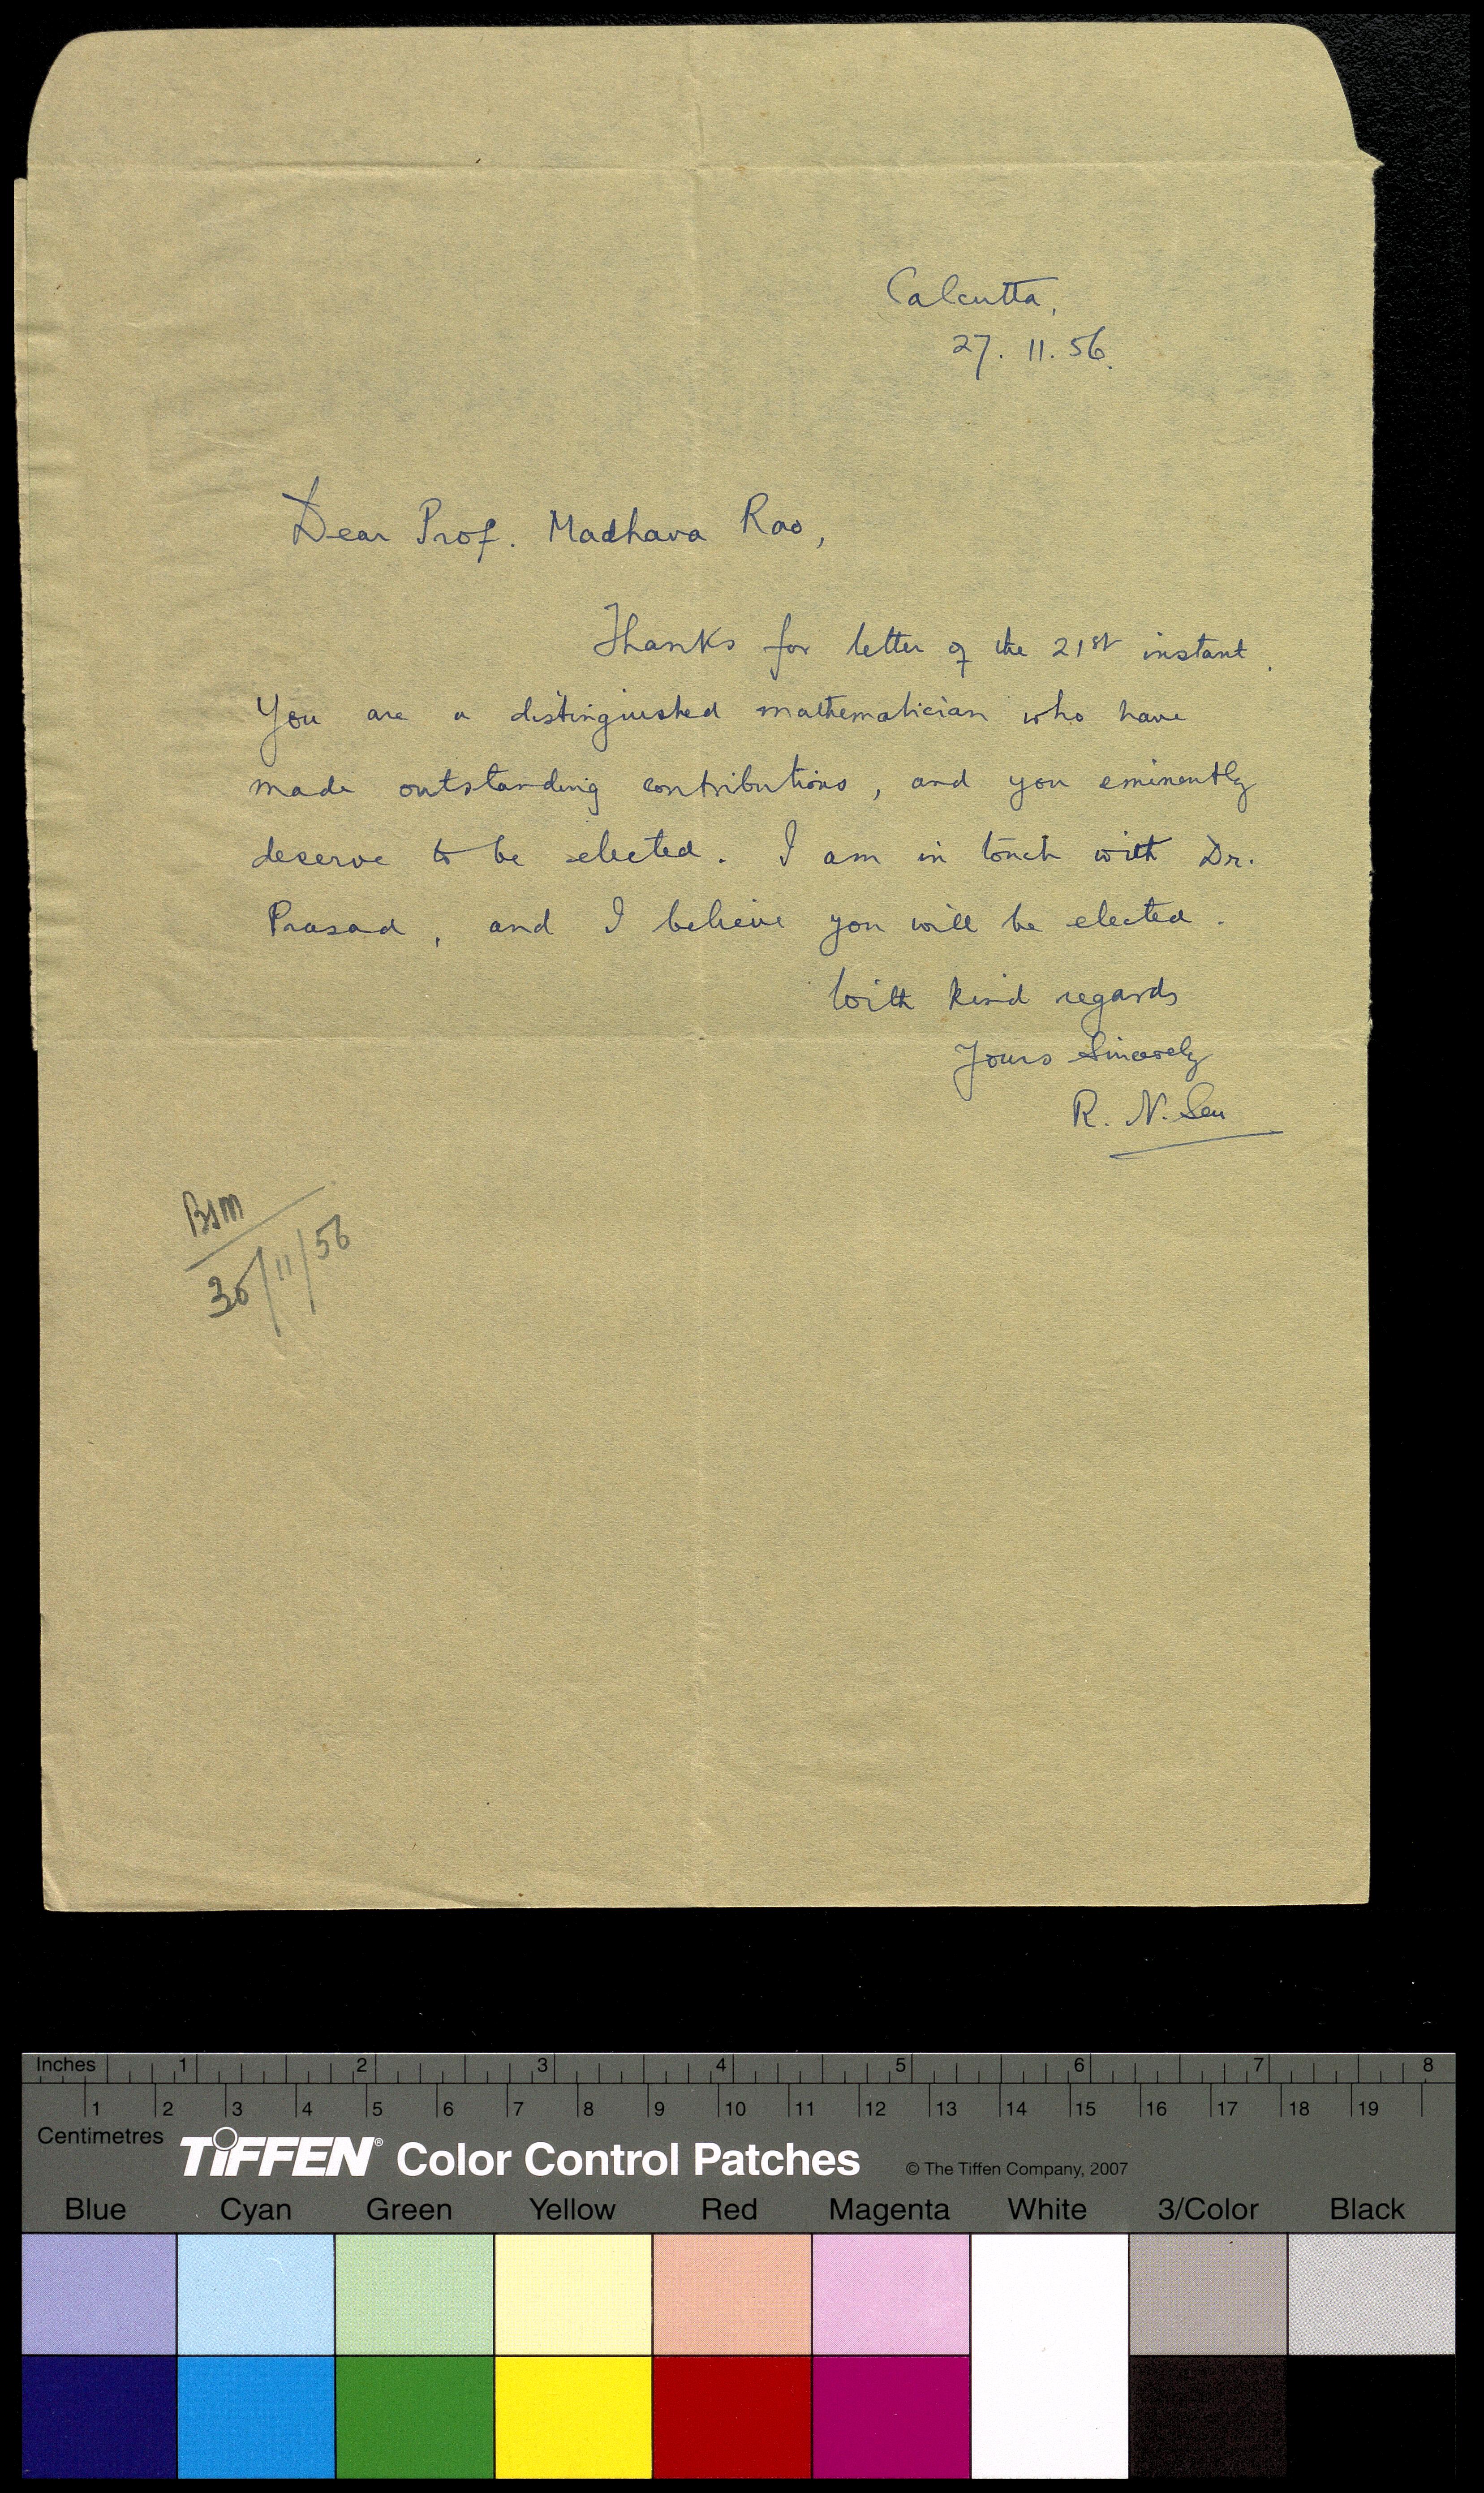 Calcutta,
27. 11. 56.
Dear Prof. Madhava Rao,
Thanks for letter of the 21st instant.
You are a distinguished mathematician who have
made outstanding contributions, and you eminently
deserve to be selected. I am in touch with Dr.
Prasad, and I believe you will be elected.
With kind regards
Yours Sincerely
R. N. Sen
BSM
30/11/56
Inches 1 2 3 4 5 6 7 8
1 2 3 4 5 6 7 8 9 10 11 12 13 14 15 16 17 18 19
Centimetres
TIFFEN® Color Control Patches © The Tiffen Company, 2007
Blue Cyan Green Yellow Red Magenta White 3/Color Black